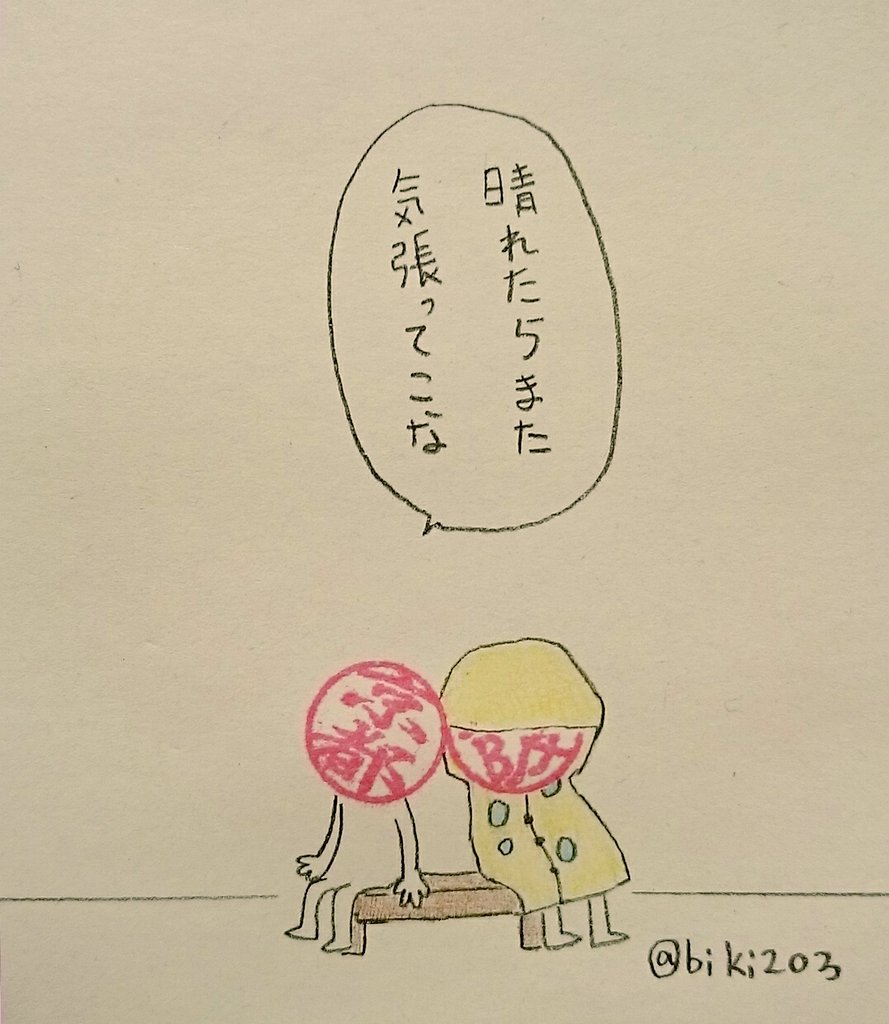 晴れたらまた
気張ってこな
京都
@biki203